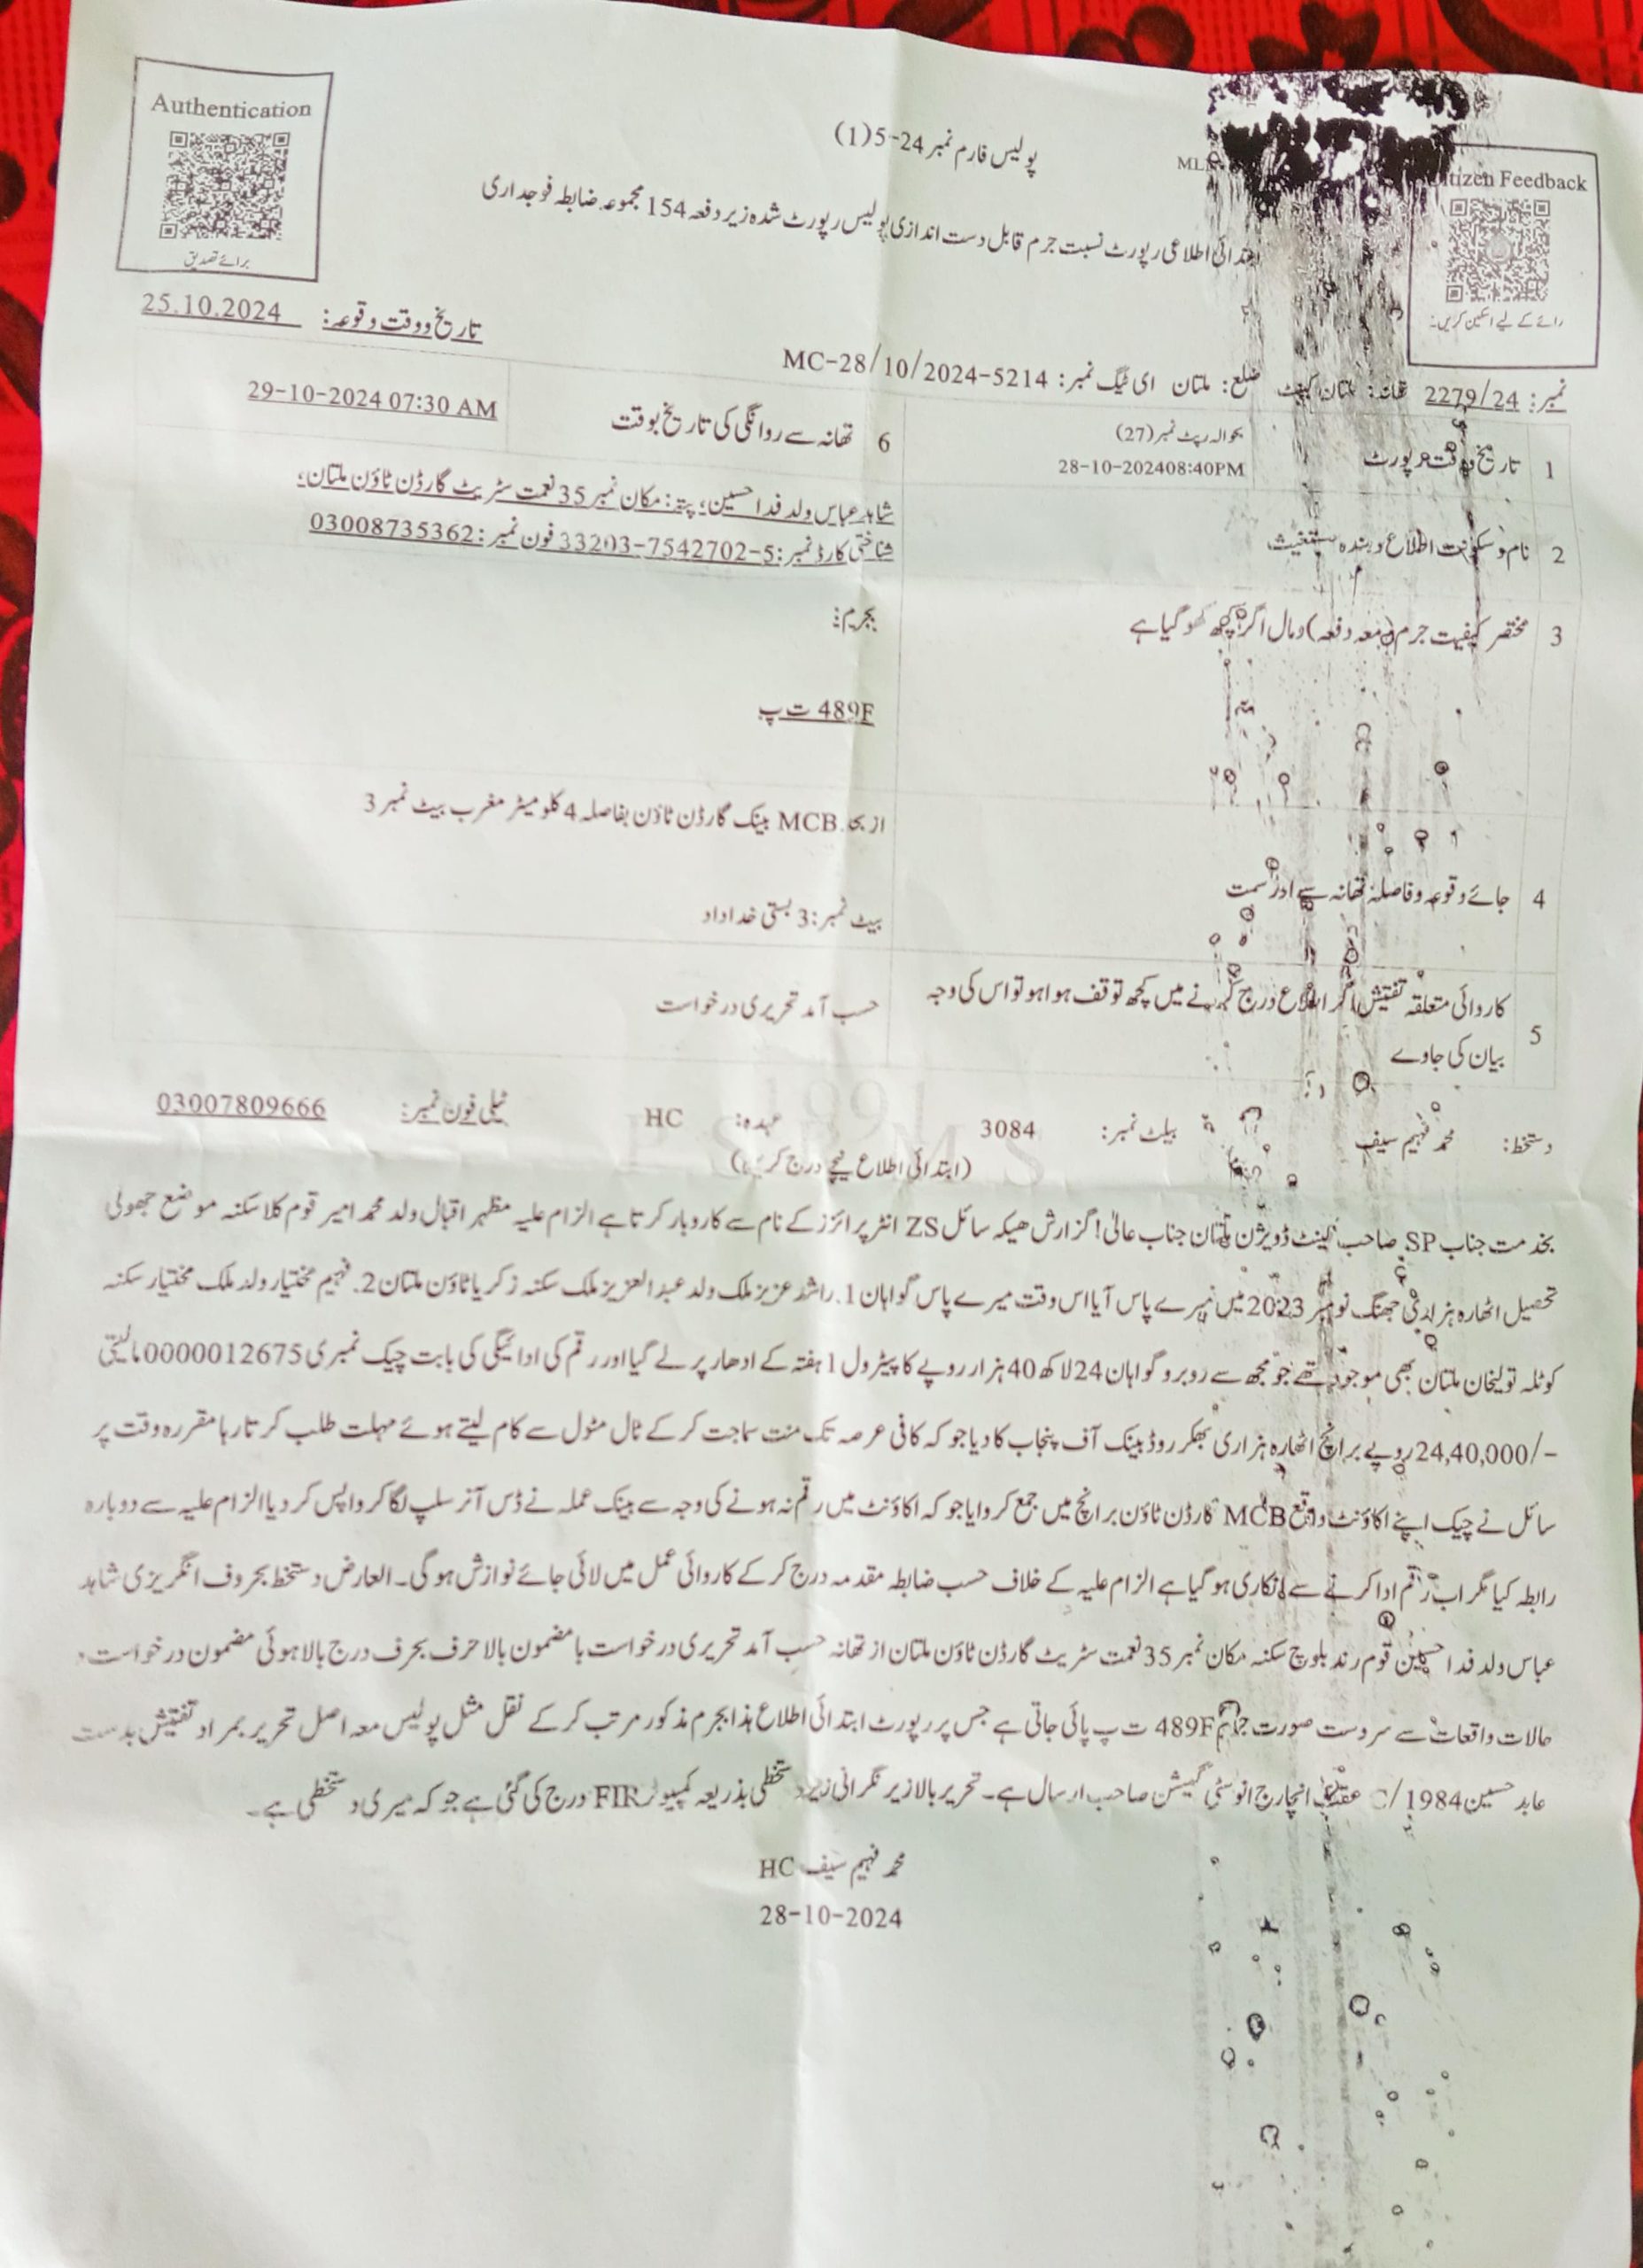 Authentication
برائے تصدیق
Citizen Feedback
رائے کے لیے اسکین کریں:
پولیس فارم نمبر 24-5(1)
ابتدائی اطلاعی رپورٹ نسبت جرم قابل دست اندازی پولیس رپورٹ شدہ زیر دفعہ 154 مجموعہ ضابطہ فوجداری
تاریخ و وقت وقوعہ: 25.10.2024
نمبر: 2279/24 تھانہ: ملتان کینٹ ضلع: ملتان ای ٹیگ نمبر: MC-28/10/2024-5214
1 تاریخ وقت رپورٹ بحوالہ رپٹ نمبر (27)
28-10-202408:40PM
6 تھانہ سے روانگی کی تاریخ بوقت 29-10-2024 07:30 AM
2 نام و سکونت اطلاع دہندہ مستغیث
شاہد عباس ولد فدا حسین، پتہ: مکان نمبر 35 نعمت سٹریٹ گارڈن ٹاؤن ملتان،
شناختی کارڈ نمبر: 33203-7542702-5 فون نمبر: 03008735362
3 مختصر کیفیت جرم (معہ دفعہ) و مال اگر کچھ کھو گیا ہے
بجرم:
489F ت پ
4 جائے وقوعہ و فاصلہ تھانہ سے اور سمت
از بجا MCB بینک گارڈن ٹاؤن بفاصلہ 4 کلو میٹر مغرب بیٹ نمبر 3
بیٹ نمبر: 3 بستی خداداد
5 کاروائی متعلقہ تفتیش اگر اطلاع درج کرنے میں کچھ توقف ہوا ہو تو اس کی وجہ
بیان کی جاوے
حسب آمد تحریری درخواست
دستخط: محمد فہیم سیف بیلٹ نمبر: 3084 عہدہ: HC ٹیلی فون نمبر: 03007809666
(ابتدائی اطلاع نیچے درج کریں)
بخدمت جناب SP صاحب کینٹ ڈویژن ملتان جناب عالی! گزارش ھیکہ سائل ZS انٹر پرائزز کے نام سے کاروبار کرتا ہے الزام علیہ مظہر اقبال ولد محمد امیر قوم کلا سکنہ موضع جھولی
تحصیل اٹھارہ ہزاری جھنگ نومبر 2023 میں میرے پاس آیا اس وقت میرے پاس گواہان 1. راشد عزیز ملک ولد عبدالعزیز ملک سکنہ زکریا ٹاؤن ملتان 2. فہیم مختیار ولد ملک مختیار سکنہ
کوٹلہ تولیخان ملتان بھی موجود تھے جو مجھ سے روبرو گواہان 24 لاکھ 40 ہزار روپے کا پیٹرول 1 ہفتہ کے ادھار پر لے گیا اور رقم کی ادائیگی کی بابت چیک نمبری 0000012675 مالیتی
24,40,000/- روپے برانچ اٹھارہ ہزاری بھکر روڈ بینک آف پنجاب کا دیا جو کہ کافی عرصہ تک منت سماجت کر کے ٹال مٹول سے کام لیتے ہوئے مہلت طلب کرتا رہا مقررہ وقت پر
سائل نے چیک اپنے اکاؤنٹ واقع MCB گارڈن ٹاؤن برانچ میں جمع کروایا جو کہ اکاؤنٹ میں رقم نہ ہونے کی وجہ سے بینک عملہ نے ڈس آنر سلپ لگا کر واپس کر دیا الزام علیہ سے دوبارہ
رابطہ کیا مگر اب رقم ادا کرنے سے انکاری ہو گیا ہے الزام علیہ کے خلاف حسب ضابطہ مقدمہ درج کر کے کاروائی عمل میں لائی جائے نوازش ہو گی۔ العارض دستخط بحروف انگریزی شاہد
عباس ولد فدا حسین قوم رند بلوچ سکنہ مکان نمبر 35 نعمت سٹریٹ گارڈن ٹاؤن ملتان از تھانہ حسب آمد تحریری درخواست با مضمون بالا حرف بحرف درج بالا ہوئی مضمون درخواست و
حالات واقعات سے سردست صورت جرم 489F ت پ پائی جاتی ہے جس پر رپورٹ ابتدائی اطلاع ہذا بجرم مذکور مرتب کر کے نقل مثل پولیس معہ اصل تحریر بمراد تفتیش بدست
عابد حسین 1984/C عقب انچارج انوسٹی گیشن صاحب ارسال ہے۔ تحریر بالا زیر نگرانی زیر دستخطی بذریعہ کمپیوٹر FIR درج کی گئی ہے جو کہ میری دستخطی ہے۔
محمد فہیم سیف HC
28-10-2024